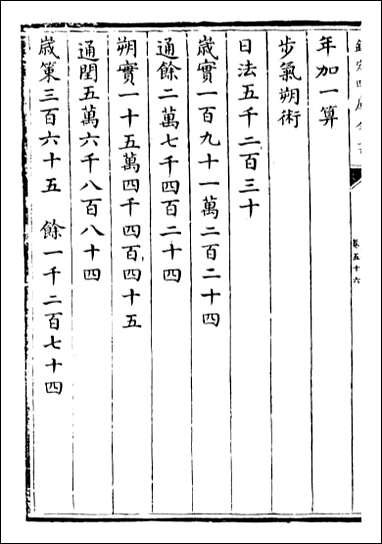 卷五十六
年加一算
步氣朔術
日法五千二百三十
嵗實一百九十一萬二百二十四
通餘二萬七千四百二十四
朔實一十五萬四千四百四十五
通閏五萬六千八百八十四
嵗策三百六十五　餘一千二百七十四